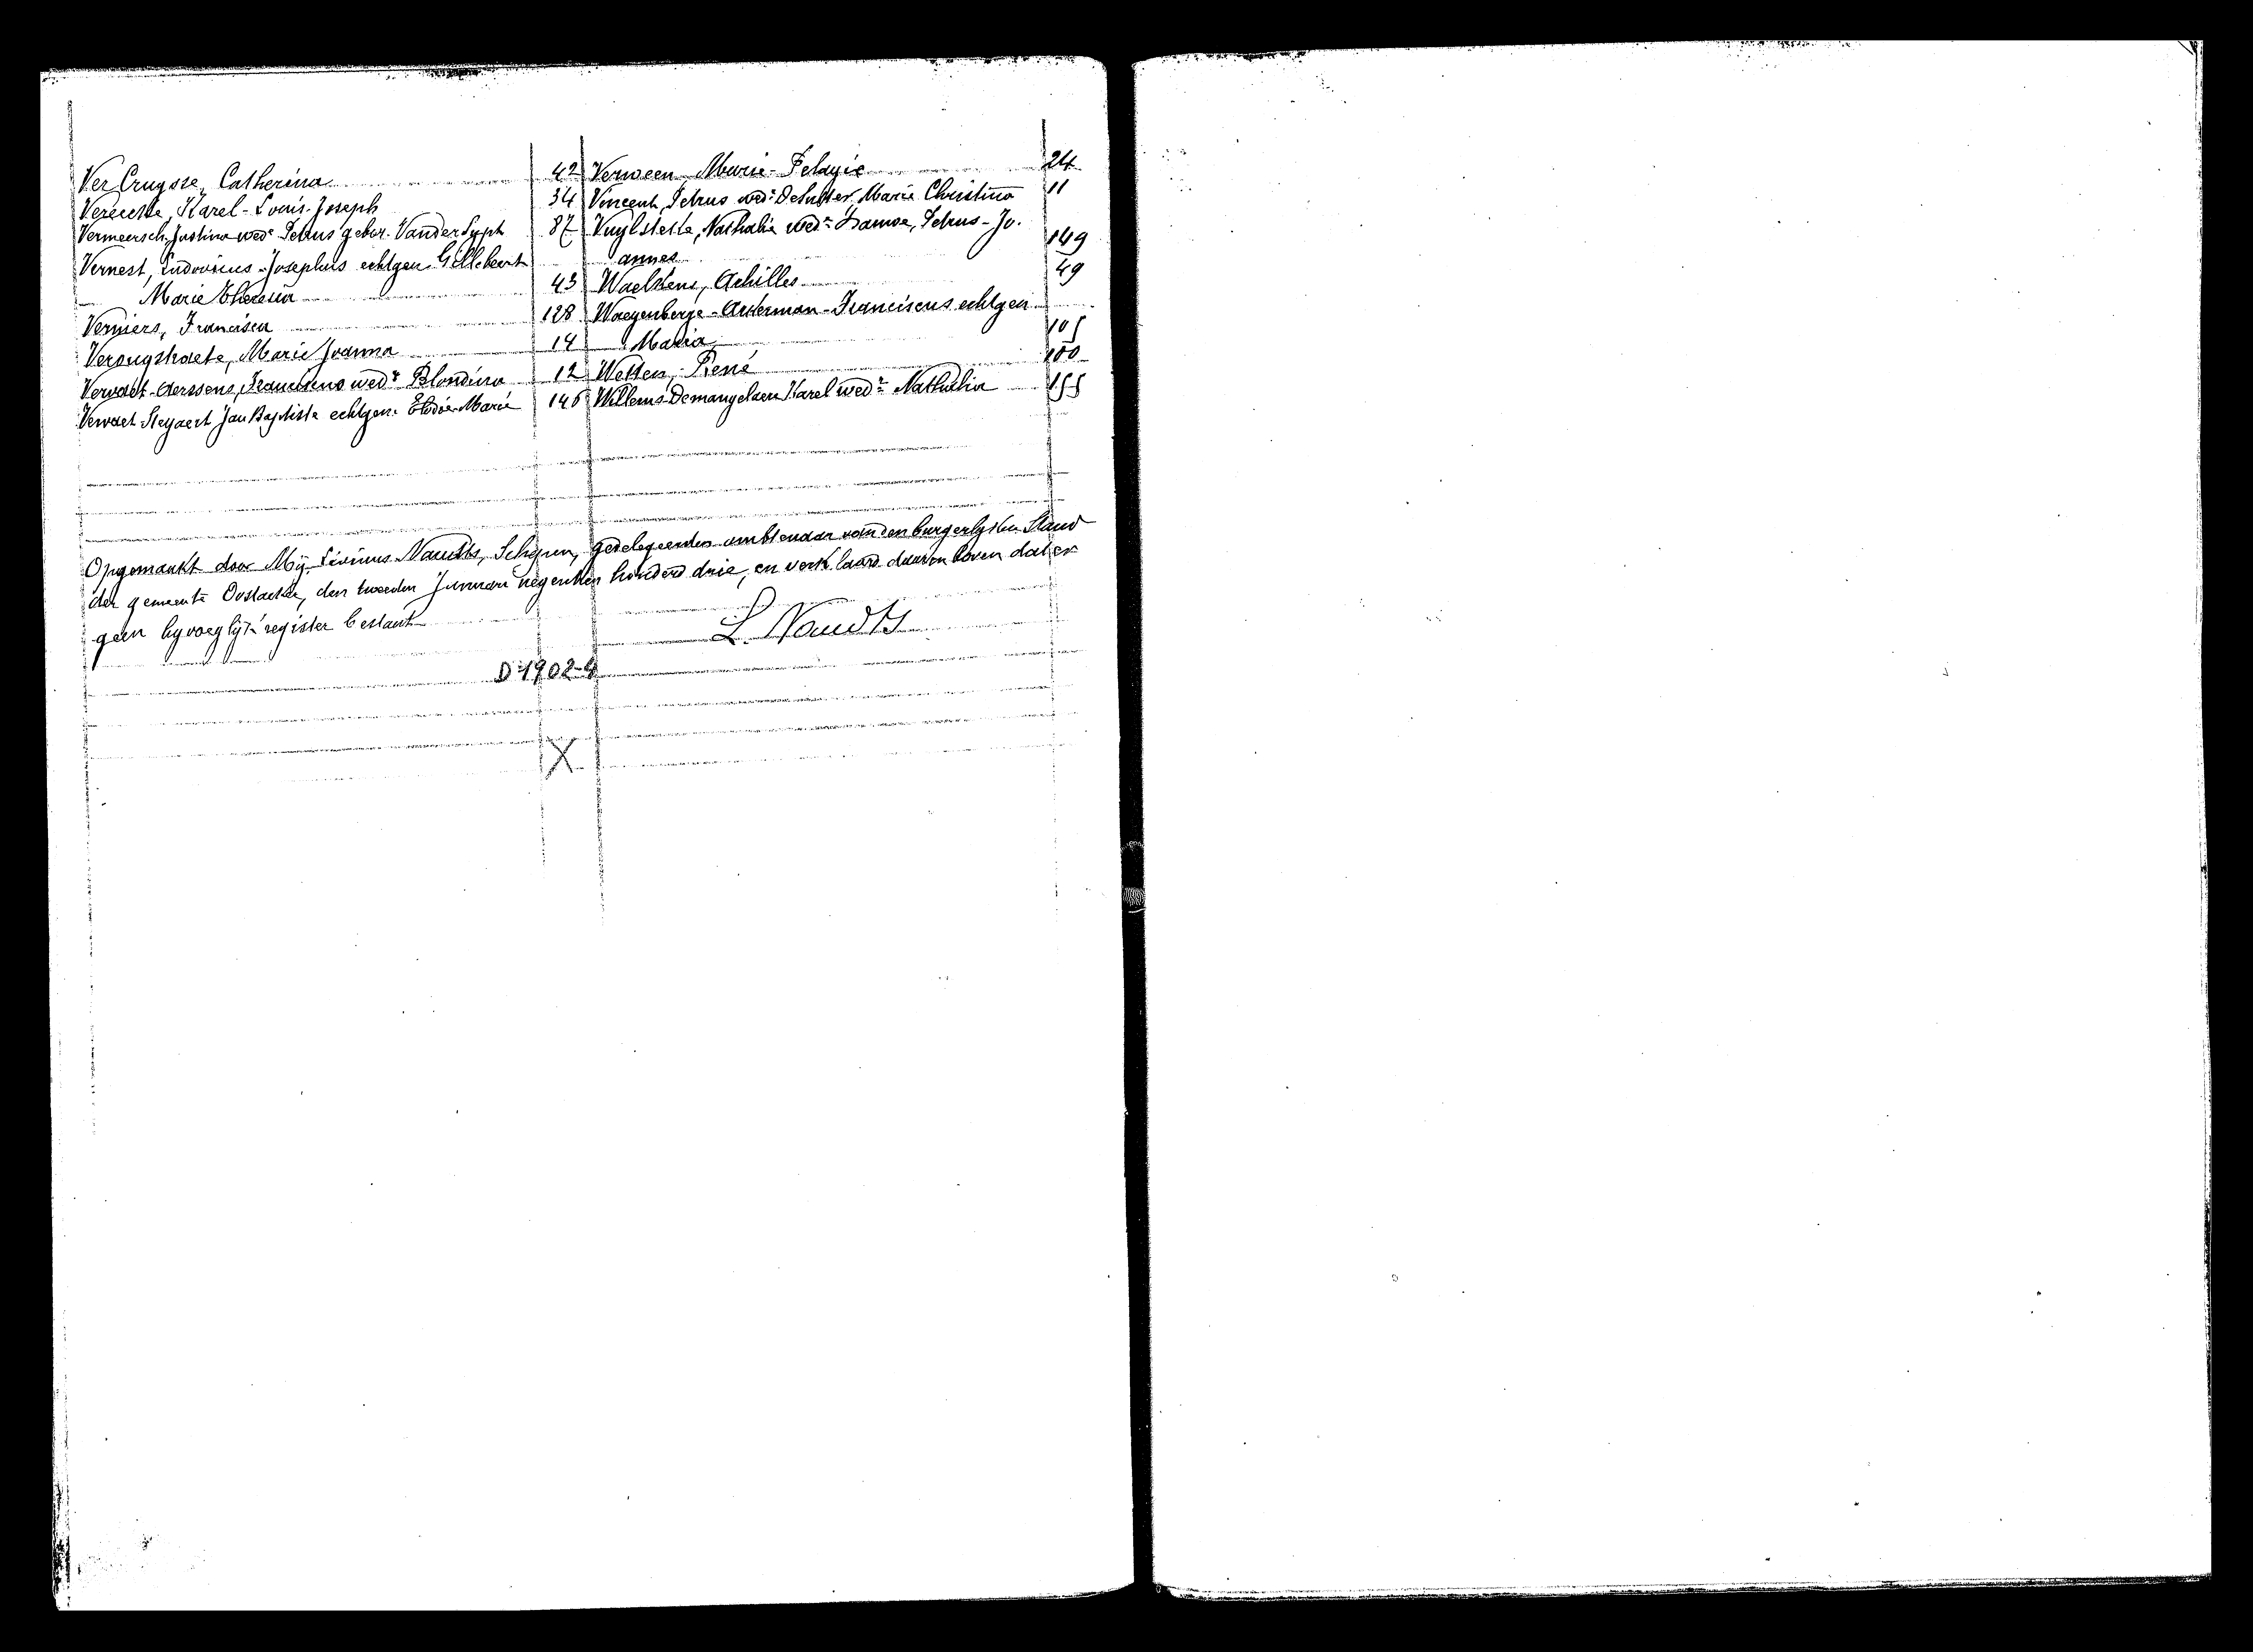 Ver Cruysse, Catherina 42
Vereecke, Karel-Louis-Joseph 34
Vermeersch, Justina wedᵉ Petrus gebor. Vander Sypt 87
Vernest, Ludovicus-Josephus echtgen Gillebert
Marie Theresia 43
Verniers, Francisca 128
Verougstraete, Marie Joanna 14
Vervaet-Aerssens, Franciscus wedʳ Blondina 12
Vervaet Steyaert Jan Baptiste echtgen. Elodie-Marie 146
Verween, Marie-Pelagie 24
Vincent, Petrus wedʳ De Sutter, Marie Christina 11
Vuylsteke, Nathalie wedᵉ Hamse, Petrus-Jo.
annes 149
Waelkens, Achilles 49
Waegenberge-Ackerman-Franciscus echtgen
Maria 105
Wetten, René 100
Willems-Demangelaere Karel wedʳ Nathalia 155
Opgemaakt door Mij Livinus Naudts, Schepen, gedelegeerden ambtenaar van den burgerlyken Stand
der gemeente Oostacker, den tweeden Januari negentien honderd drie, en verklaard daarenboven dat er
geen byvoeglijk register bestaat
L. Naudts
D 1902-4
X